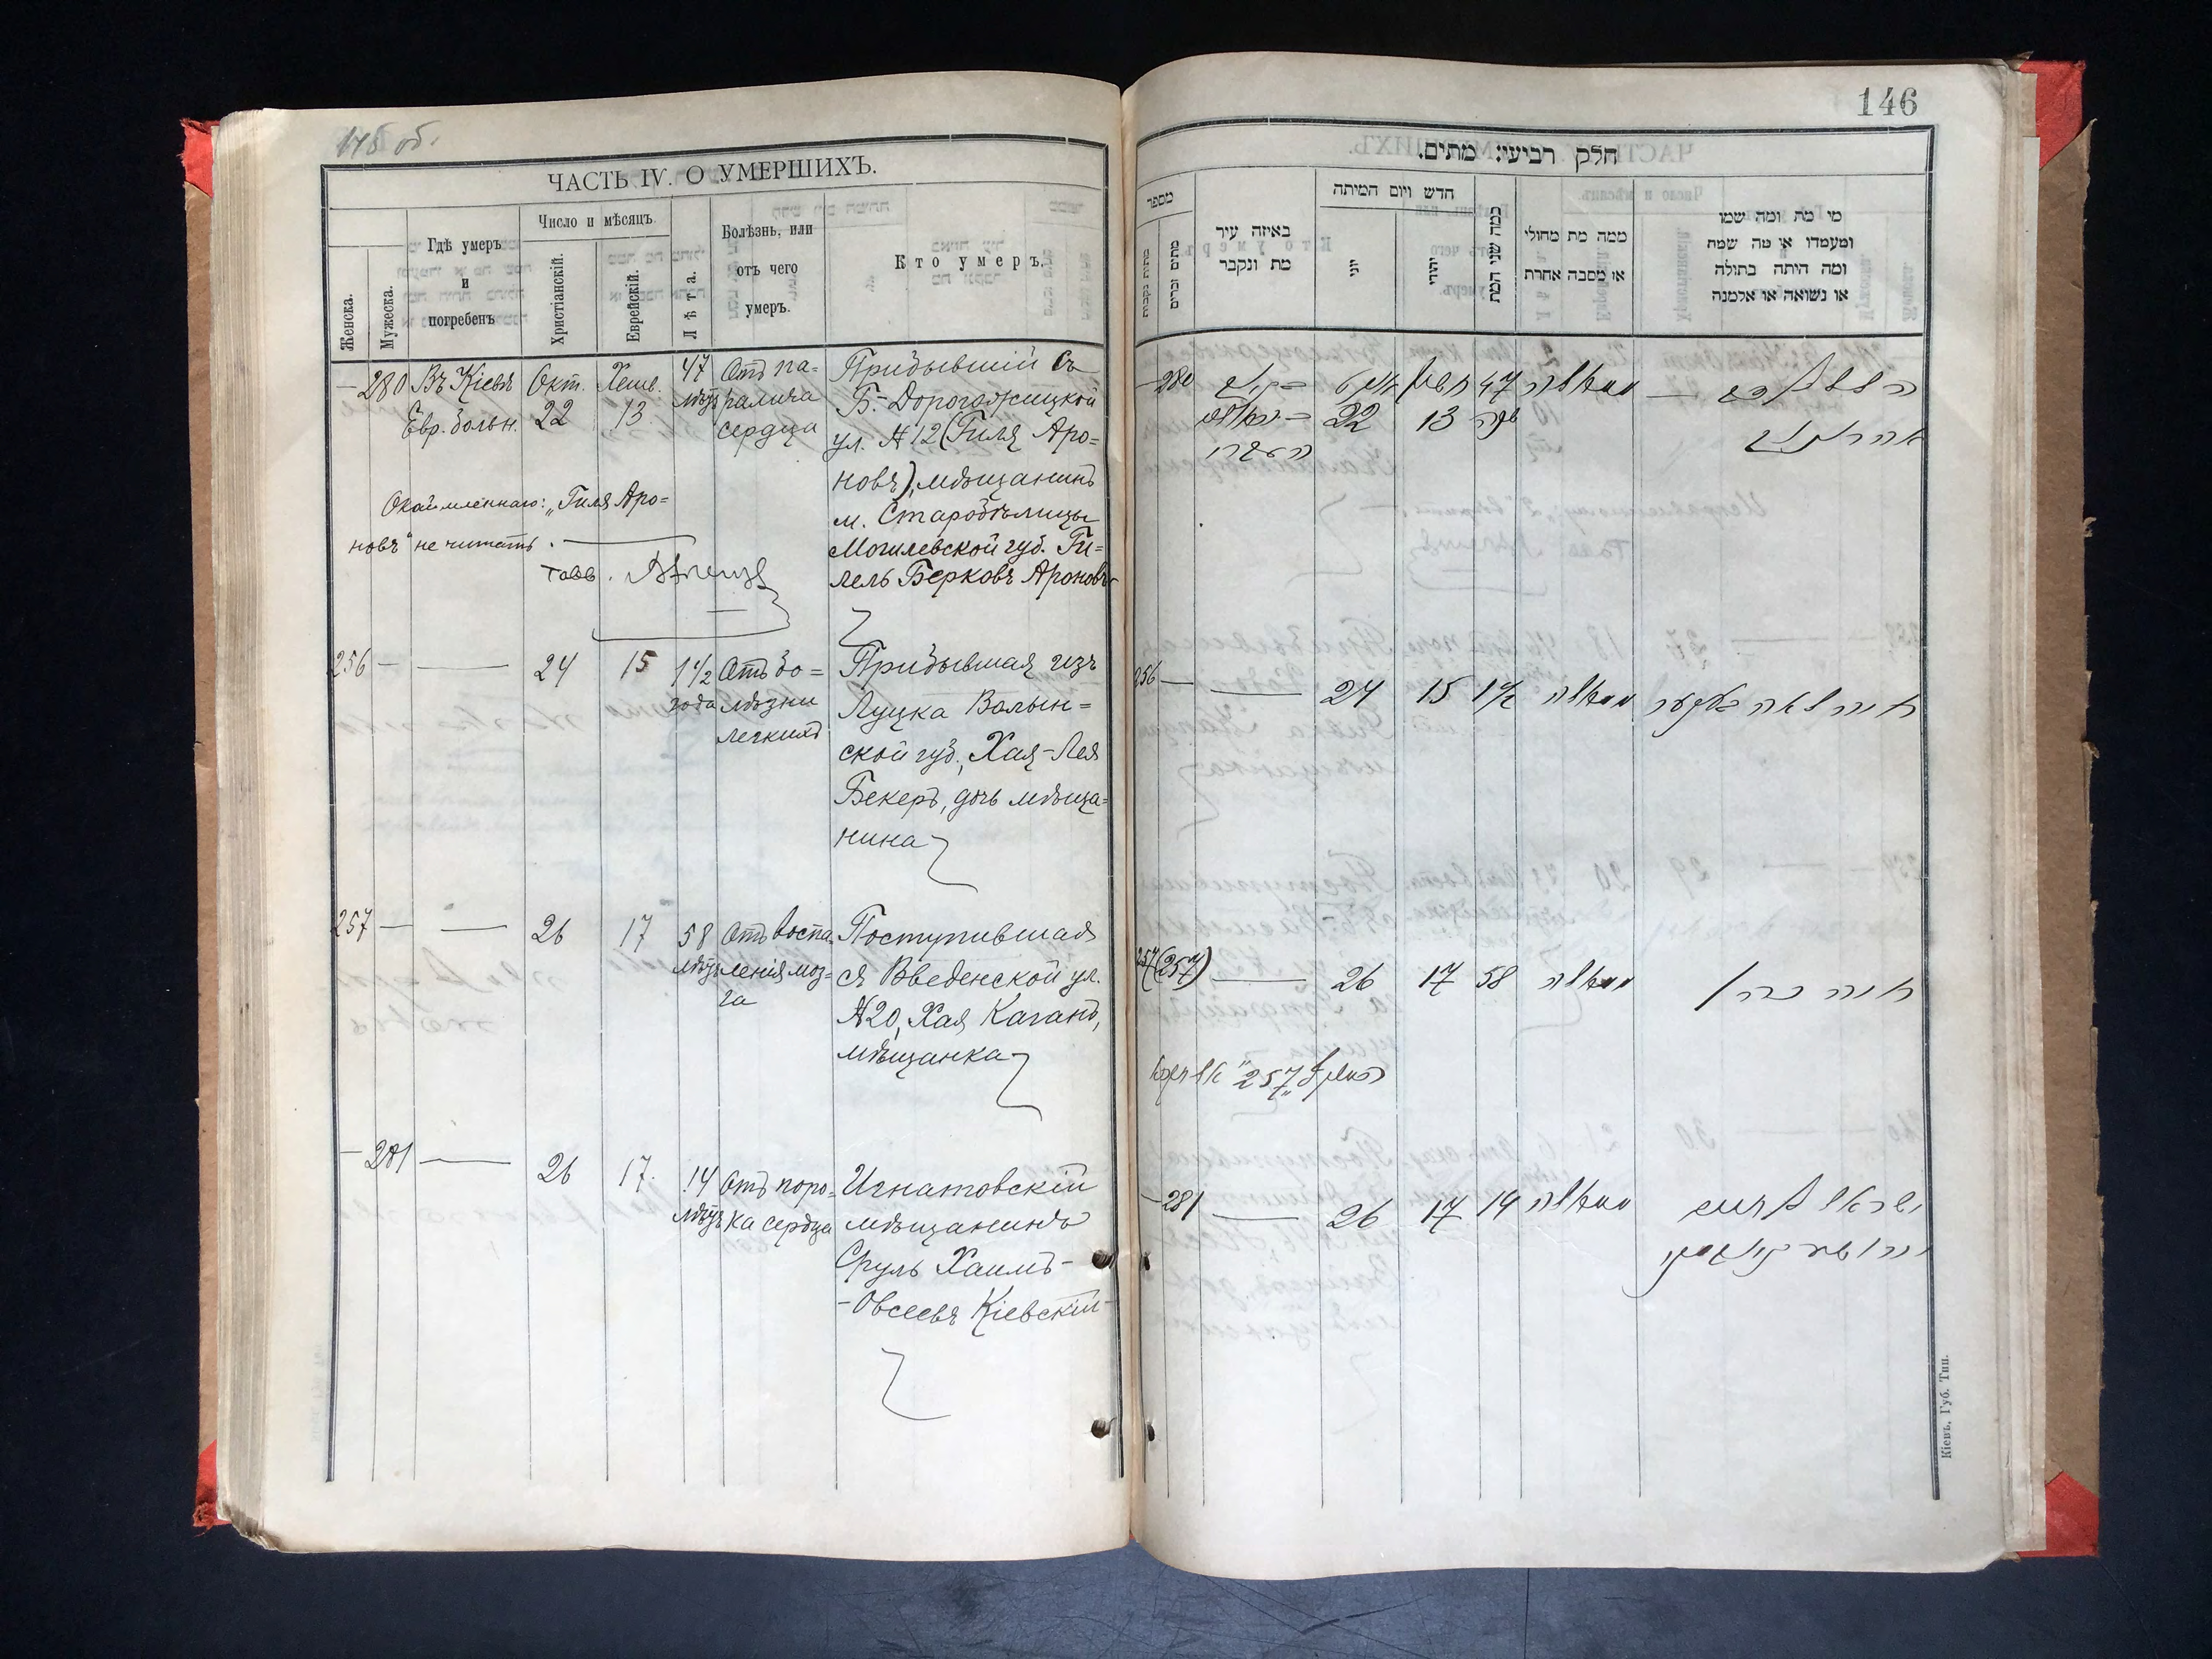 145 об.
ЧАСТЬ IV. О УМЕРШИХЪ.
Женска.
Мужеска.
Гдѣ умеръ
и
погребенъ
Число и мѣсяцъ
Христіанскій.
Еврейскій.
Лѣта.
Болѣзнь, или
отъ чего
умеръ.
Кто умеръ.
— 280 Въ Кіевѣ Окт. Хешв. 47 Отъ па-
Евр. больн. 22 13 лѣтъ ралича
сердца
Прибывшій съ
Б.-Дорогожицкой
ул. № 12 (Гиля Аро-
новъ), мѣщанинъ
м. Старобѣлицы
Могилевской губ. Ги-
лель Берковъ Ароновъ
Окаймленнаго: „Гиля Аро-
новъ“ не читать.
256 — — 24 15 1½ Отъ бо-
года лѣзни
легкихъ
Прибывшая изъ
Луцка Волын-
ской губ., Хая-Лея
Бекеръ, дочь мѣща-
нина
257 — — 26 17 58 Отъ воспа-
лѣтъ ленія моз-
га
Поступившая
съ Введенской ул.
№ 20, Хая Каганъ,
мѣщанка
— 281 — 26 17 14 Отъ поро-
лѣтъ ка сердца
Игнатовскій
мѣщанинъ
Сруль Хаимъ-
-Овсеевъ Кіевскій
146
חלק רביעי: מתים.
מספר
מתות נקבות
מתים זכרים
באיזה עיר
מת ונקבר
חדש ויום המיתה
יוני
יהודי
כמה שני המת
ממה מת מחולי
או מסבה אחרת
מי מת ומה שמו
ומעמדו או מה שמה
ומה היתה בתולה
או נשואה או אלמנה
— 280 22 13 47
256 — — 24 15 1½
חיה לאה בעקער
257 (257) — 26 17 58
חיה כהן
— 281 — 26 17 14
Кіевъ, Губ. Тип.